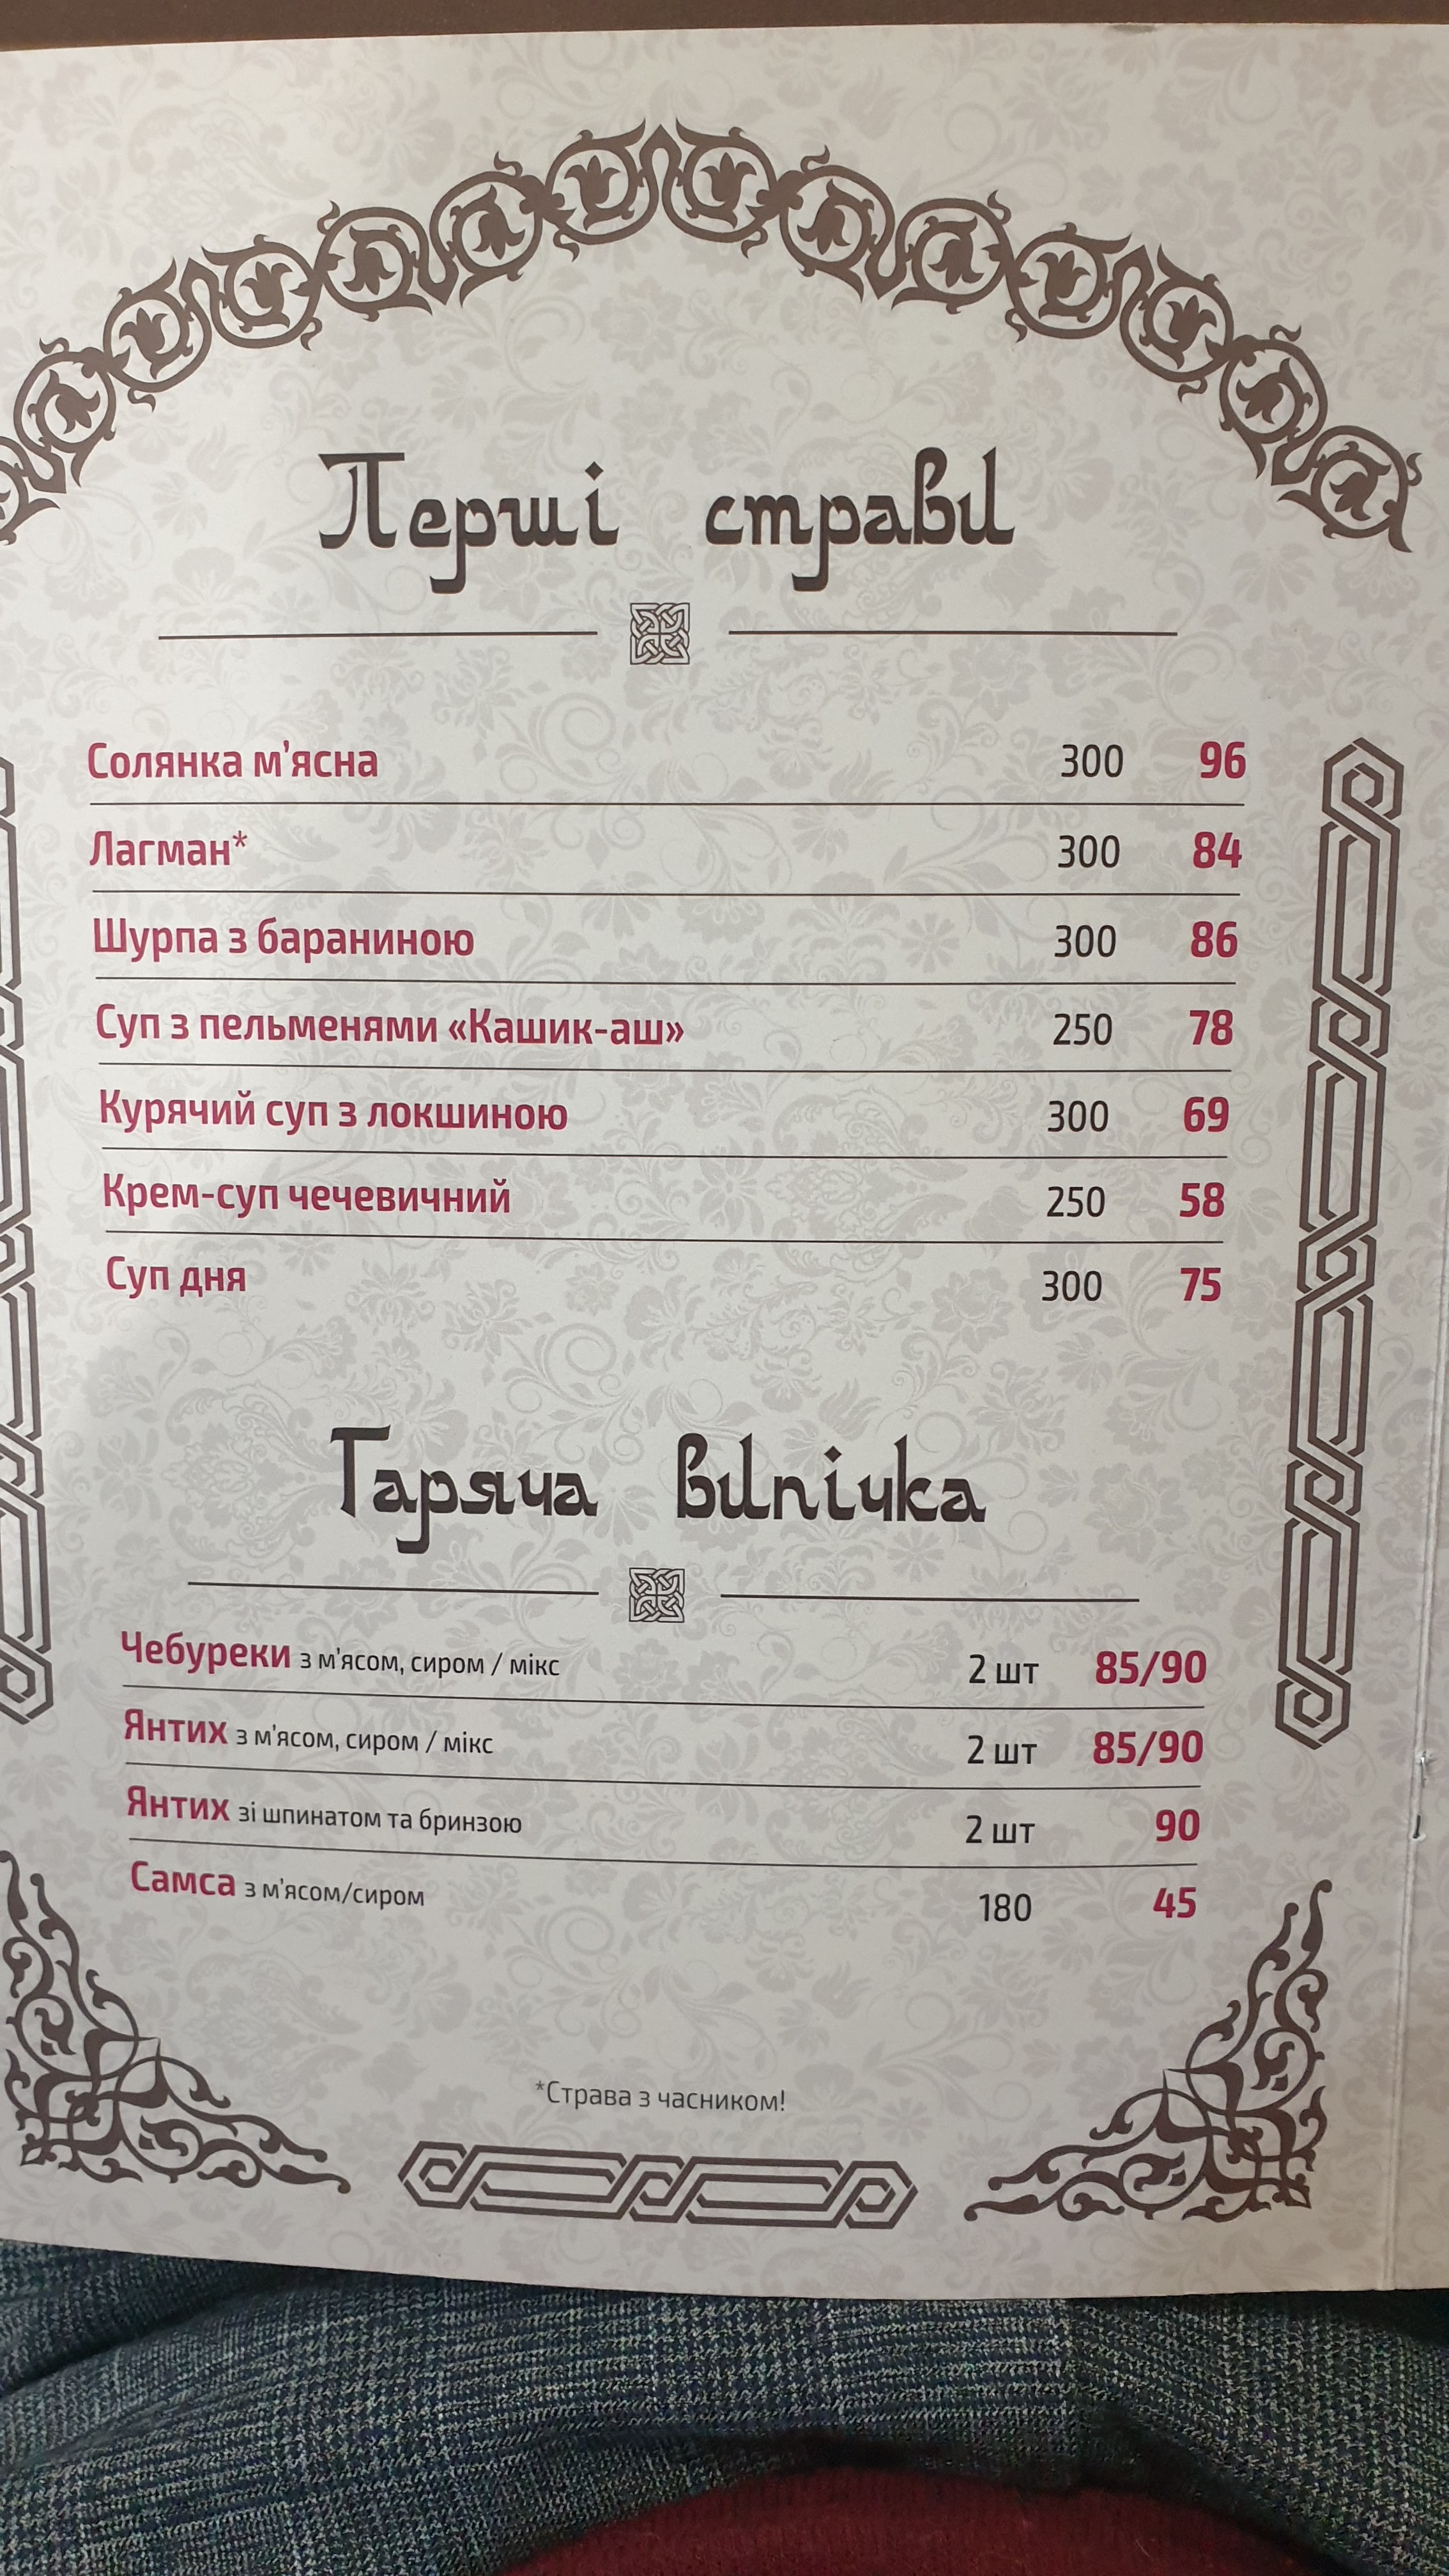 Перші страви
Солянка м'ясна 300 96
Лагман* 300 84
Шурпа з бараниною 300 86
Суп з пельменями «Кашик-аш» 250 78
Курячий суп з локшиною 300 69
Крем-суп чечевичний 250 58
Суп дня 300 75
Гаряча випічка
Чебуреки з м'ясом, сиром / мікс 2 шт 85/90
Янтих з м'ясом, сиром / мікс 2 шт 85/90
Янтих зі шпинатом та бринзою 2 шт 90
Самса з м'ясом/сиром 180 45
*Страва з часником!